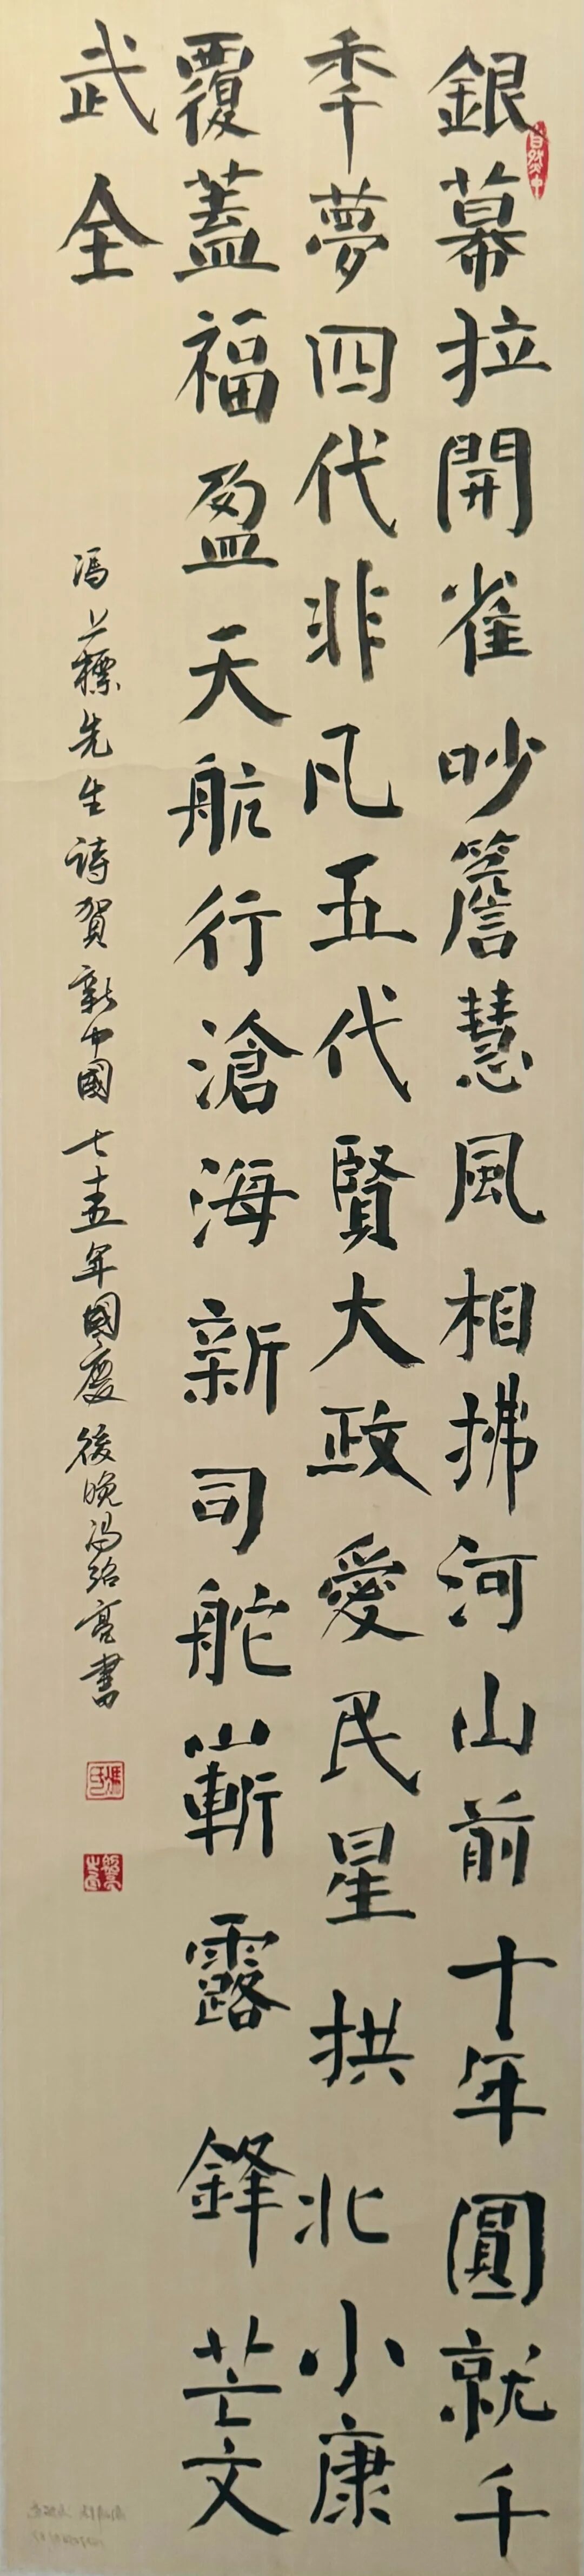 銀幕拉開雀吵簷慧風相拂河山前十年圓就千
秊夢四代非凡五代賢大政愛民星拱北小康
覆蓋福盈天航行滄海新司舵嶄露鋒芒文
武全
冯上標先生詩賀新中國七十五年國慶後晚冯紹亮書
自然中